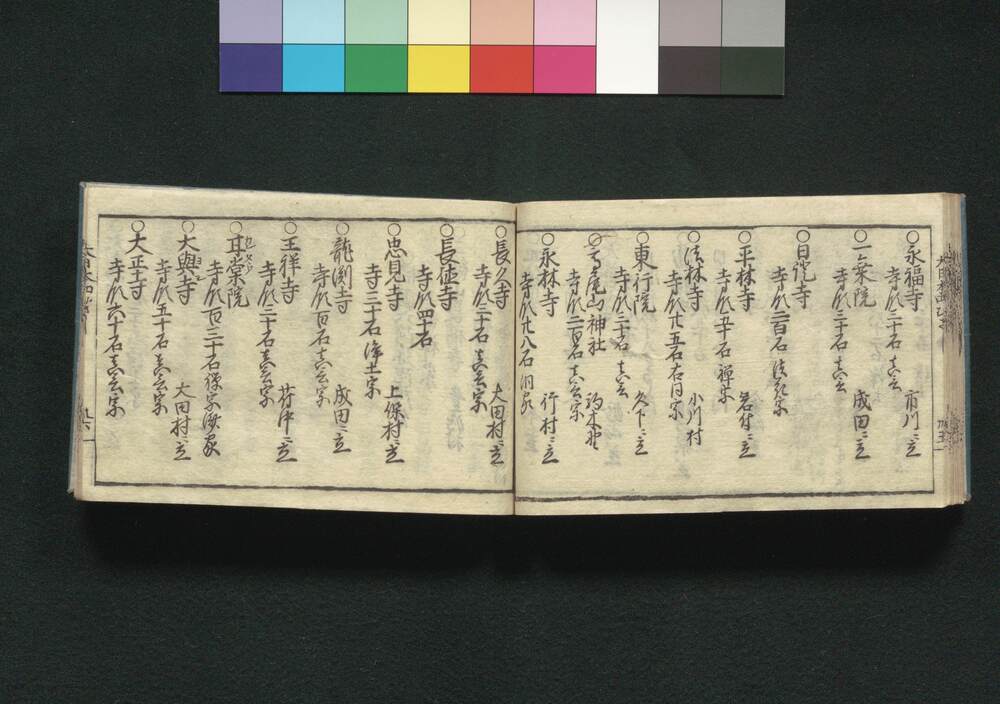 ○永福寺
寺領三十石 真言 市川ニ立
○一乗院
寺領三十石 真言 成田ニ立
寺領二百石 法花宗
○平林寺
寺領五十石 禅宗 岩付ニ立
○法林寺
寺領廿五石右同宗 小川村
○東行院
寺領三十石 真言 久下ニ立
尾山神社
寺領二百石 真言宗
○永林寺
寺領廿八石 同家 行村ニ立
○長久寺
寺領三十石 真言宗 大田村ニ立
○長徳寺
寺領四十石
○忠見寺
寺三十石 浄土宗 上保村ニ立
○龍渕寺
寺領百石真言宗 成田ニ立
○玉祥寺
寺領三十石真言宗
○甘棠院
寺領百三十石禅宗済家
○大興寺
寺領五十石真言宗 大田村ニ立
○大正寺
寺領六十石真言宗